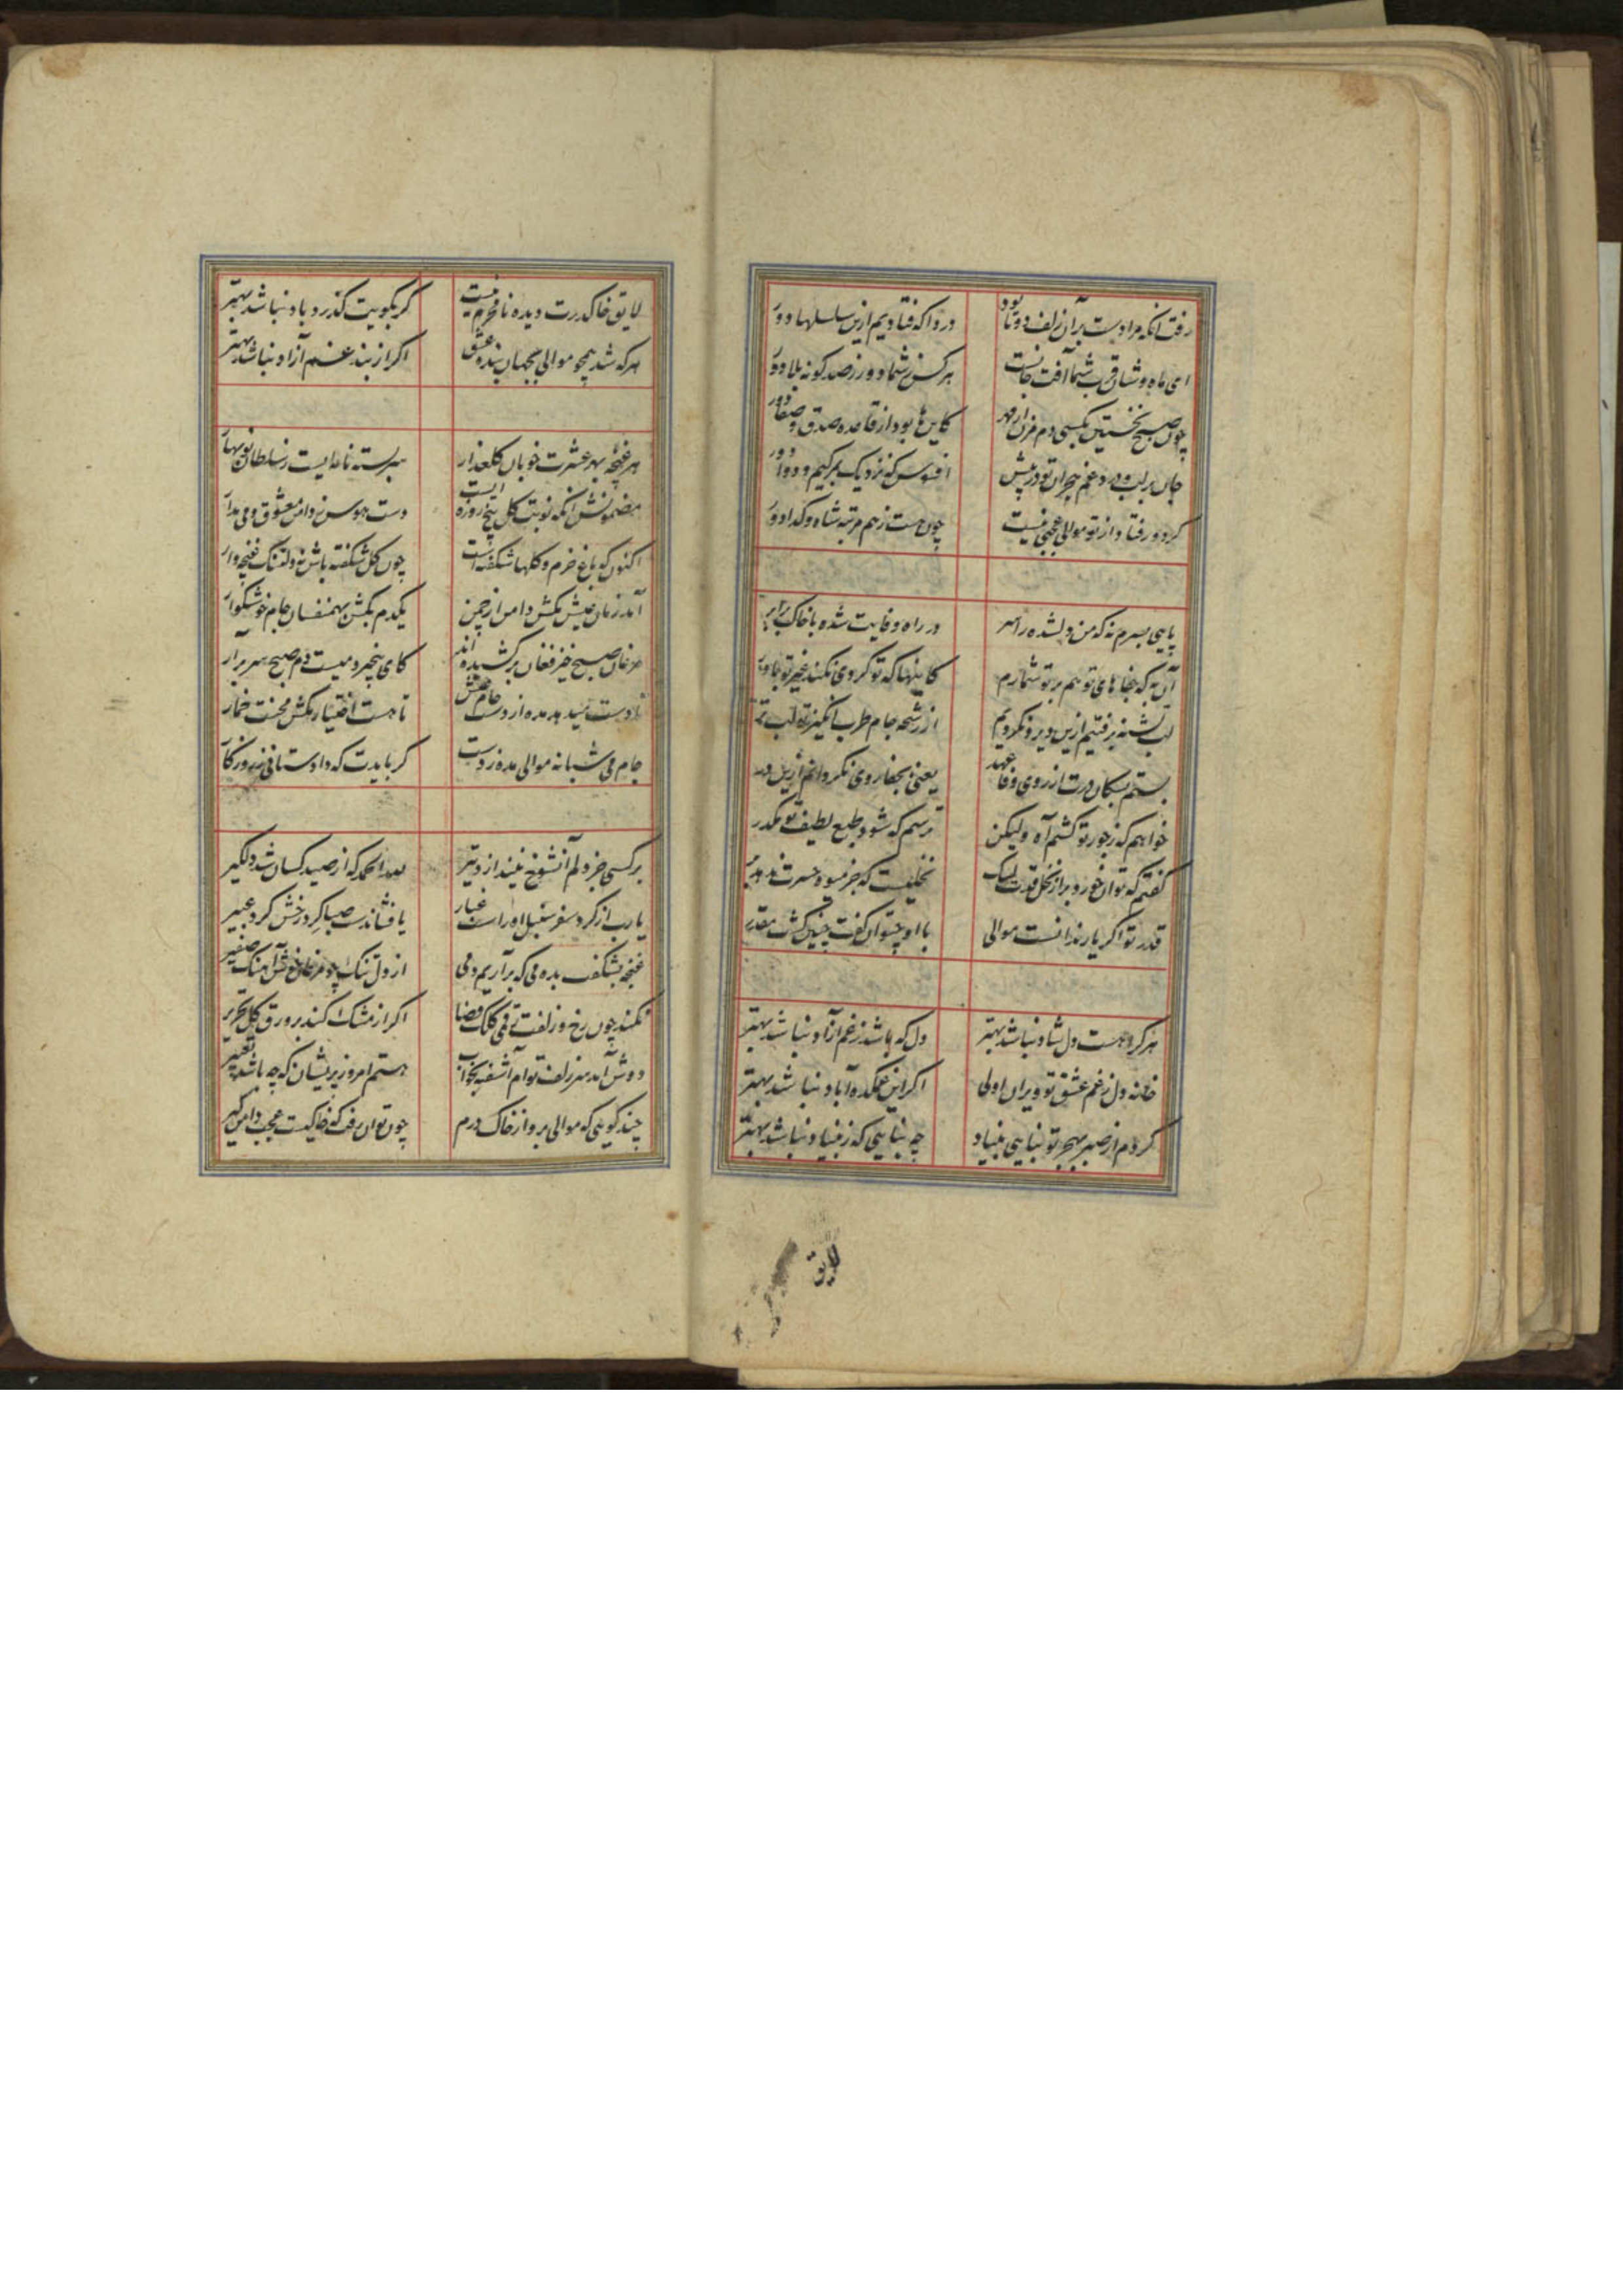 رفت آنکه مرا دست بران زلف دوتا بود درداکه فتادیم ازین سلسلها دور
ای ماه وشان قرب شما آفت جانست هر کس ز شما دور ز صد کونه بلا دور
چون صبح نخستین بکسی دم مزن از مهر کاین ها بود از قاعده صدق و صفا دور
جان بر لب و درد و غم هجران تو در پیش افسوس که نزدیک بمرکیم و دوا دور
کر دور فتاد از تو موالی عجبی نیست چون هست ز هم مرتبه شاه و کدا دور
پایی بسرم نه که من دلشده را سر در راه وفایت شده با خاک برابر
آن به که جفاهای تو هم بر تو شمارم کاینها که تو کردی نکند غیر تو باور
لب تشنه برفتیم ازین دیر و نکردیم از رشحه جام طرب انکیز تو لب تر
بستم بسکان درت از روی وفا عهد یعنی بجفا روی نکردانم ازین در
خواهم که ز جور تو کشم آه ولیکن ترسم که شود طبع لطیف تو مکدر
کفتم که توان خورد بر از نخل قدت لیک نخلیست که جز میوه حسرت ندهد بر
قدر تو اکر یار ندانست موالی با او چتوان کفت چنین کشت مقدر
هر کرا هست دل شاد نباشد بهتر دل که باشد ز غم آزاد نباشد بهتر
خانه دل ز غم عشق تو ویران اولی اکر این غمکده آباد نباشد بهتر
کردم از صبر بهجر تو بنایی بنیاد چه بنایی که ز بنیاد نباشد بهتر
لایق
لایق خاک درت دیده نامحرم نیست کر بکویت کذرد باد نباشد بهتر
هر که شد همچو موالی بجهان بنده عشق اکر از بند غم آزاد نباشد بهتر
هر غنچه بهر عشرت خوبان کلعذار سربسته نامه‌ایست ز سلطان نوبهار
مضمونش آنکه نوبت کل پنج روزه ایست دست هوس ز دامن معشوق و می مدار
اکنون که باغ خرم و کلها شکفته است چون کل شکفته باش نه دلتنک غنچه وار
آمد زمان عیش مکش دامن از چمن یکدم بکش بهمنفسان جام خوشکوار
مرغان صبح خیز فغان برکشیده اند کای بیخبر دمیست دم صبح سر برار
تا دست میدهد مده از دست جام عیش تا هست اختیار مکش محنت خمار
جام می شبانه موالی مده ز دست کر بایدت که داد ستانی ز روزکار
بر کسی جز دلم آنشوخ نیندازد تیر لله الحمد که از صید کسان شد دلکیر
یارب از کرد سفر سنبل او راست غبار یا فشاندست صبا کرد رخش کرد عبیر
غنچه بشکفت بده می که برآریم دمی از دل تنک چو مرغان خوش آهنک صفیر
نکند چون رخ و زلفت رقمی کلک قضا اکر از مشک کند بر ورق کل تحریر
دوش آمد سر زلف توام آشفته بخواب هستم امروز پریشان که چه باشد تعبیر
چند کویی که موالی برو از خاک درم چون توان رفت که خاکیست عجب دامنکیر